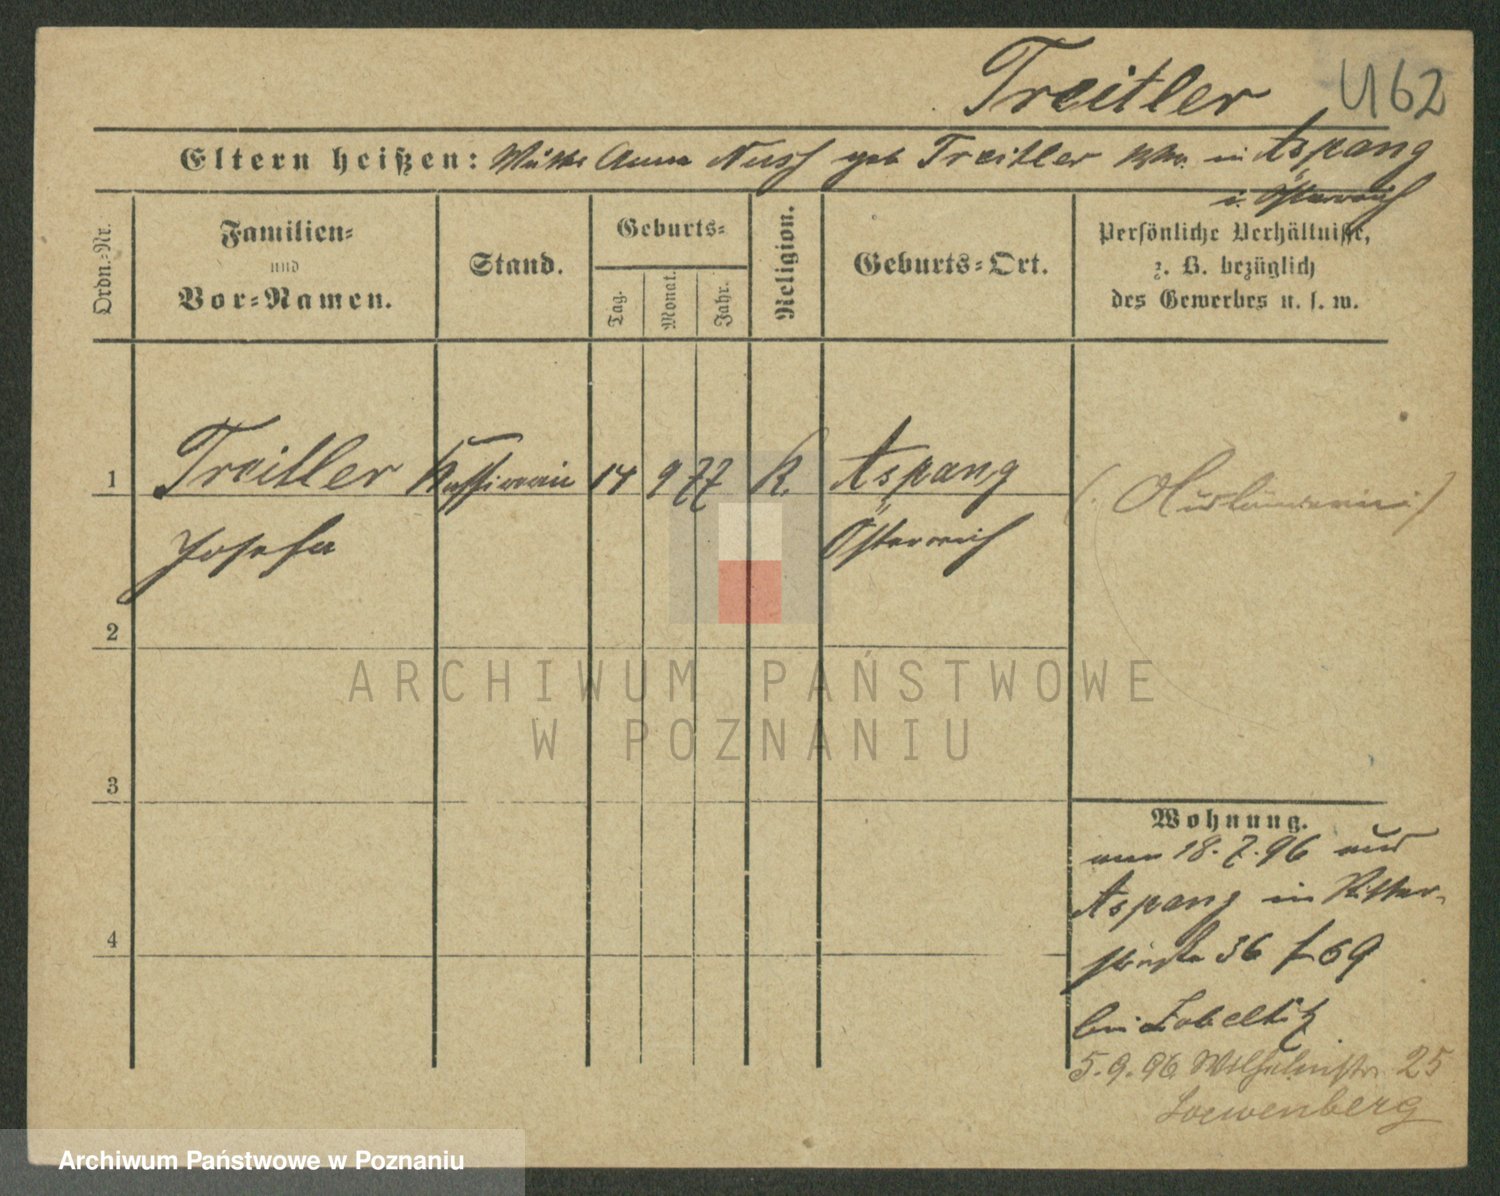 Treitler
U62
Eltern heißen: Mutter Anna geb Treitler in Aspang
i. Österreich
Ordn.-Nr.
Familien-
und
Vor-Namen.
Stand.
Geburts-
Tag.
Monat.
Jahr.
Religion.
Geburts-Ort.
Persönliche Verhältnisse,
z. B. bezüglich
des Gewerbes u. s. w.
1 Treitler Kassirerin 14 9 77 K. Aspang (Ausländerin)
Josefa Österreich
2
3
4
Wohnung.
18.7.96 aus
Aspang in Ritter-
straße 36
bei Zobeltitz
5.9.96 Wilhelmstr. 25
Loewenberg
ARCHIWUM PAŃSTWOWE
W POZNANIU
Archiwum Państwowe w Poznaniu